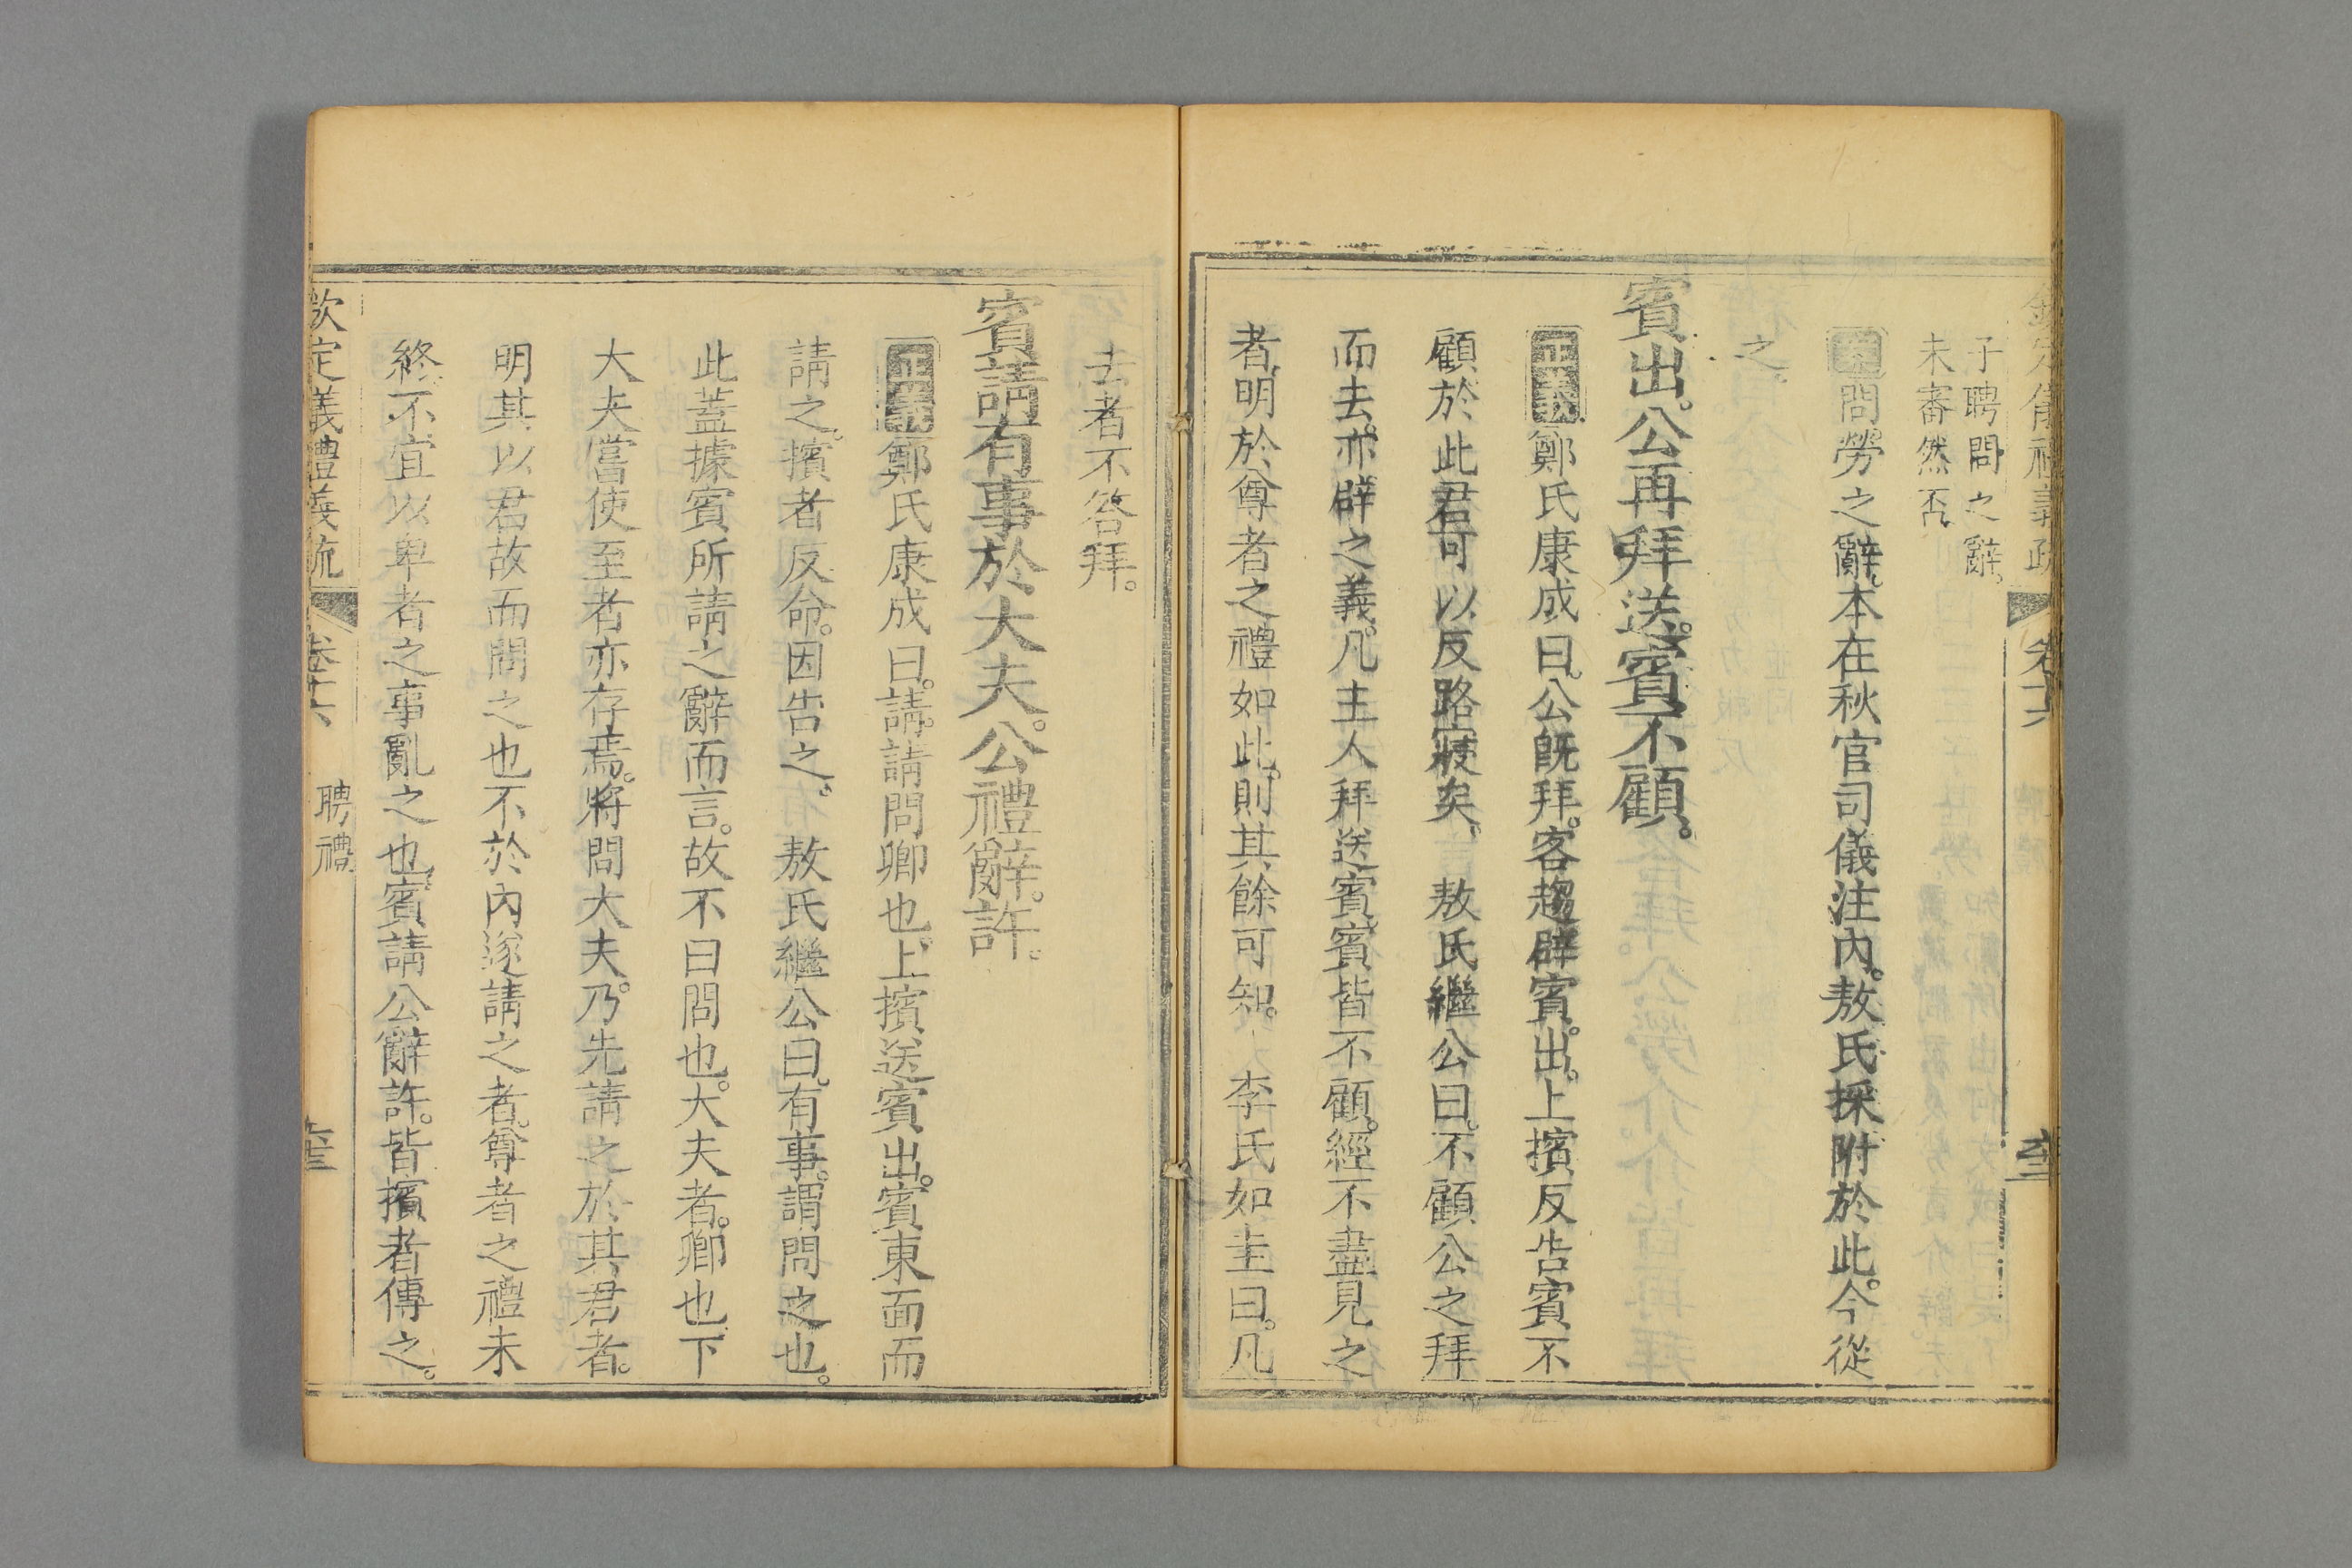 子聘問之辭。
未審然否
案問勞之辭本在秋官司儀注內。敖氏採附於此。今從
之。
賓出。公再拜送。賓不顧。
正義鄭氏康成曰。公旣拜。客趨辟。賓出。上擯反告賓不
顧於此。君可以反路寢矣。 敖氏繼公曰。不顧公之拜
而去。亦辟之義。凡主人拜送賓。賓皆不顧。經不盡見之
者。明於尊者之禮如此。則其餘可知。 李氏如圭曰。凡
卷十六
去者不答拜。
賓請有事於大夫。公禮辭。許。
正義鄭氏康成曰。請。請問卿也。上擯送賓出。賓東面而
請之。擯者反命。因告之。 敖氏繼公曰。有事。謂問之也。
此蓋據賓所請之辭而言。故不曰問也。大夫者。卿也。下
大夫嘗使至者亦存焉。將問大夫。乃先請之於其君者。
明其以君故而問之也不於內遂請之者。尊者之禮未
終。不宜以卑者之事亂之也。賓請公辭許。皆擯者傳之。
欽定儀禮義疏 卷十六 聘禮